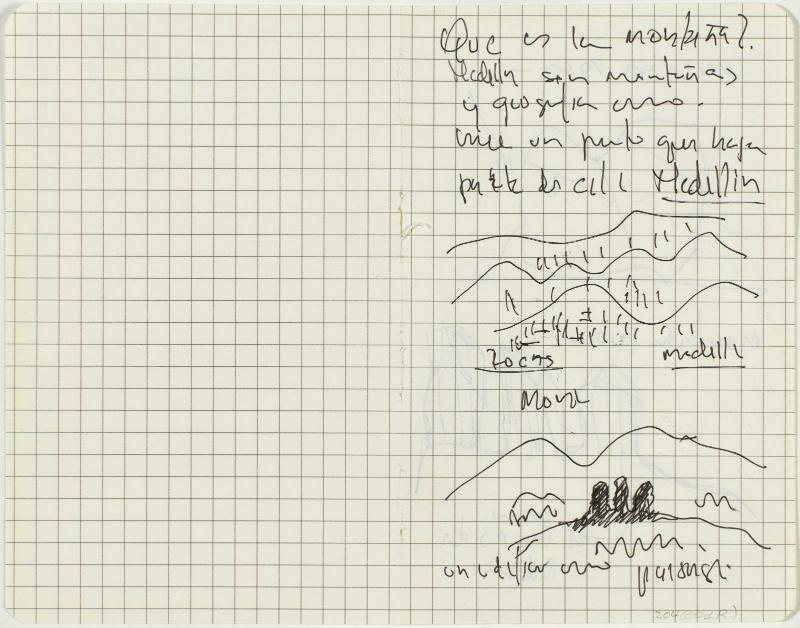 Que es la montaña?.
Medellin son montañas
y geografia como.
un punto que haga
parte de Medellin
Rocas
medelli
un edificio como paisaje.